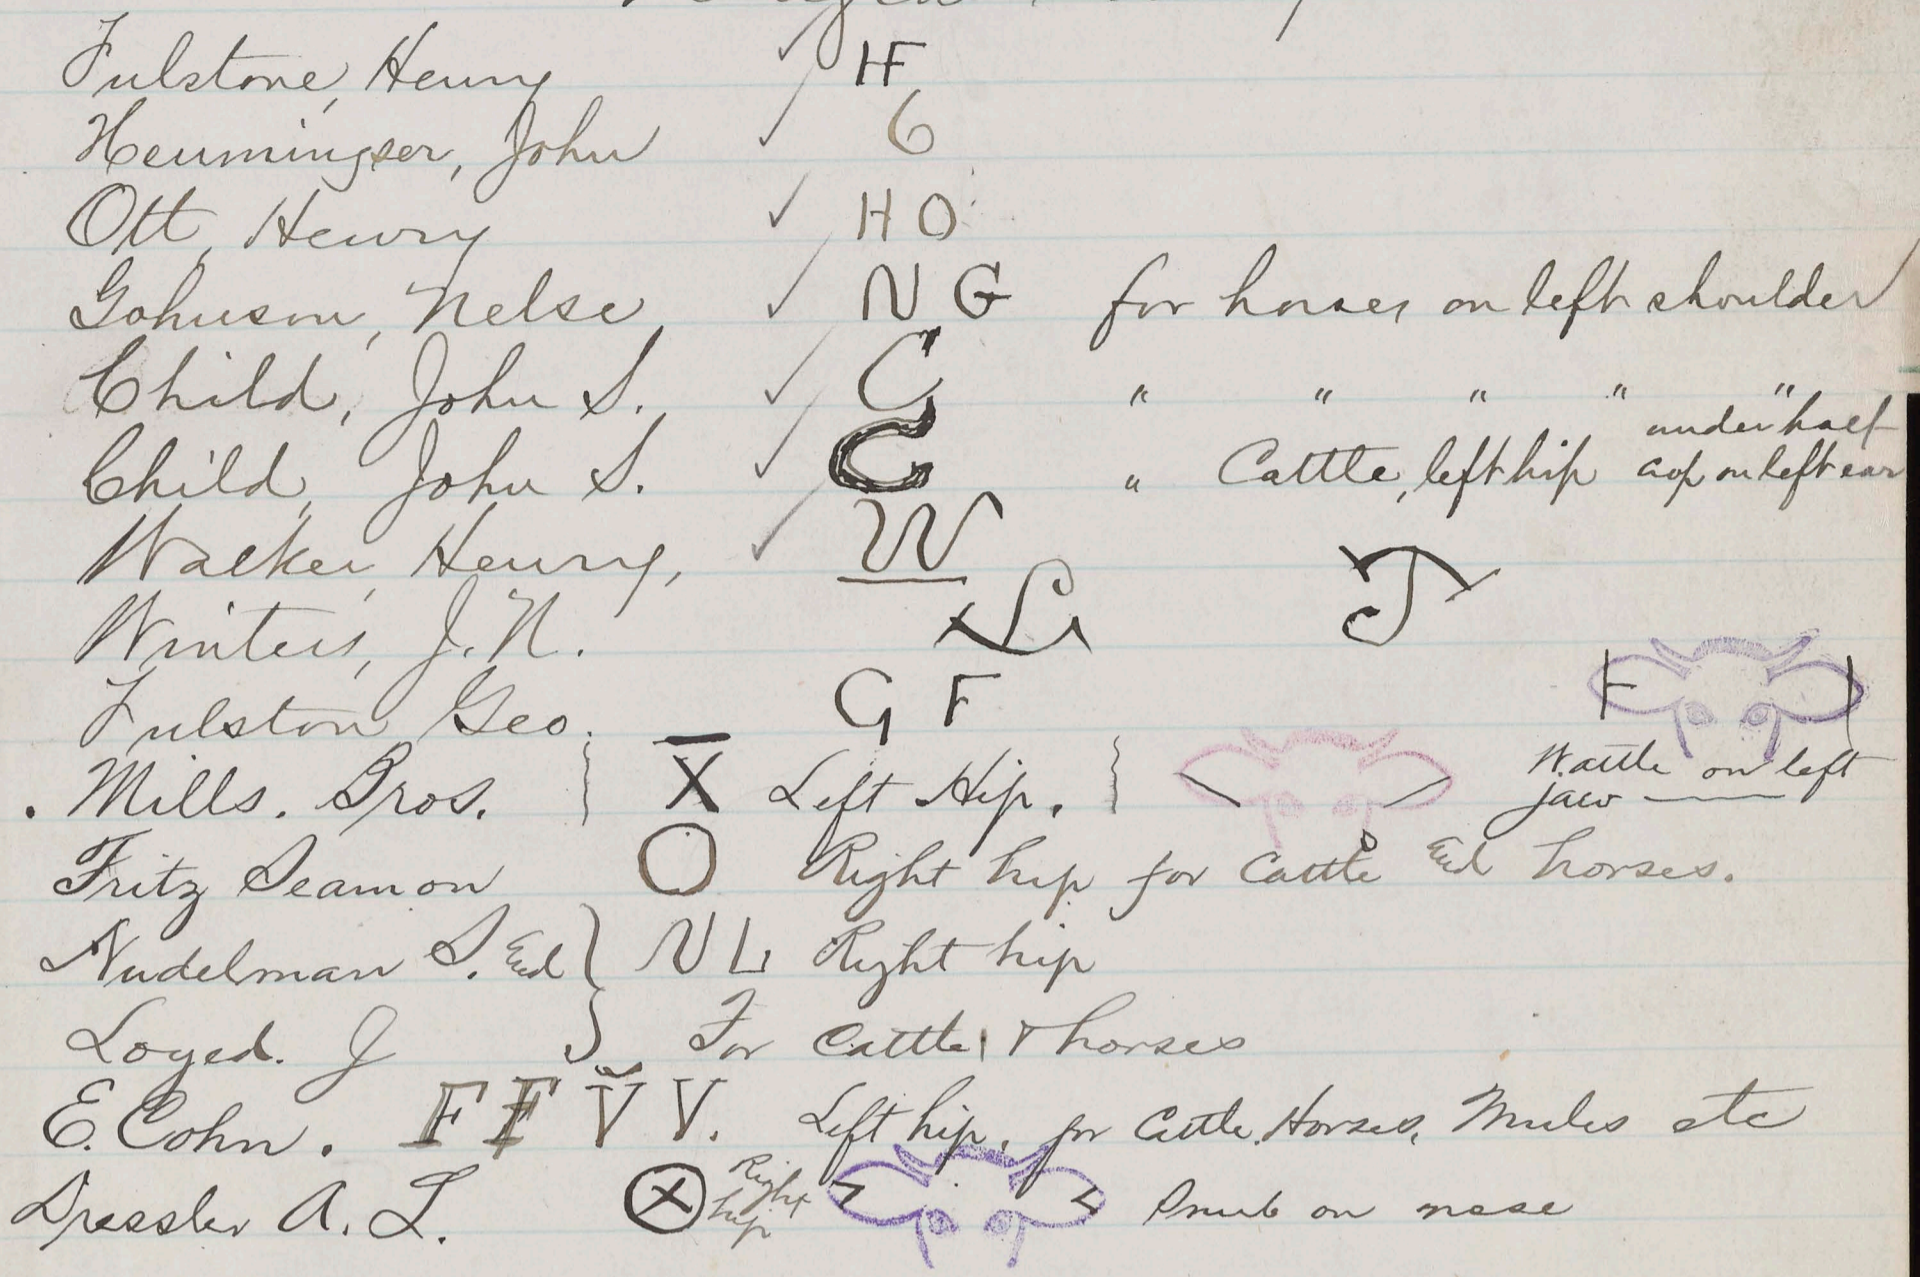 Fulstone, Henry HF
Henningser, John 6
Ott, Henry H O
Gohnson, Nelse N G for horses on left shoulder
Child, John S. C " " " " "
Child, John S. C " Cattle, left hip under half crop on left ear
Walker, Henry, W
Winters, J. N.
Fulston Geo. G F
Mills. Bros. X Left Hip. Wattle on left jaw
Fritz Seamon O Right hip for Cattle and horses.
Nudelman S. and N L Right hip
Loyed. J For Cattle & horses
E. Cohn. F F V V. Left hip, for Cattle, Horses, Mules etc
Dressler A. L. X Right hip on nose